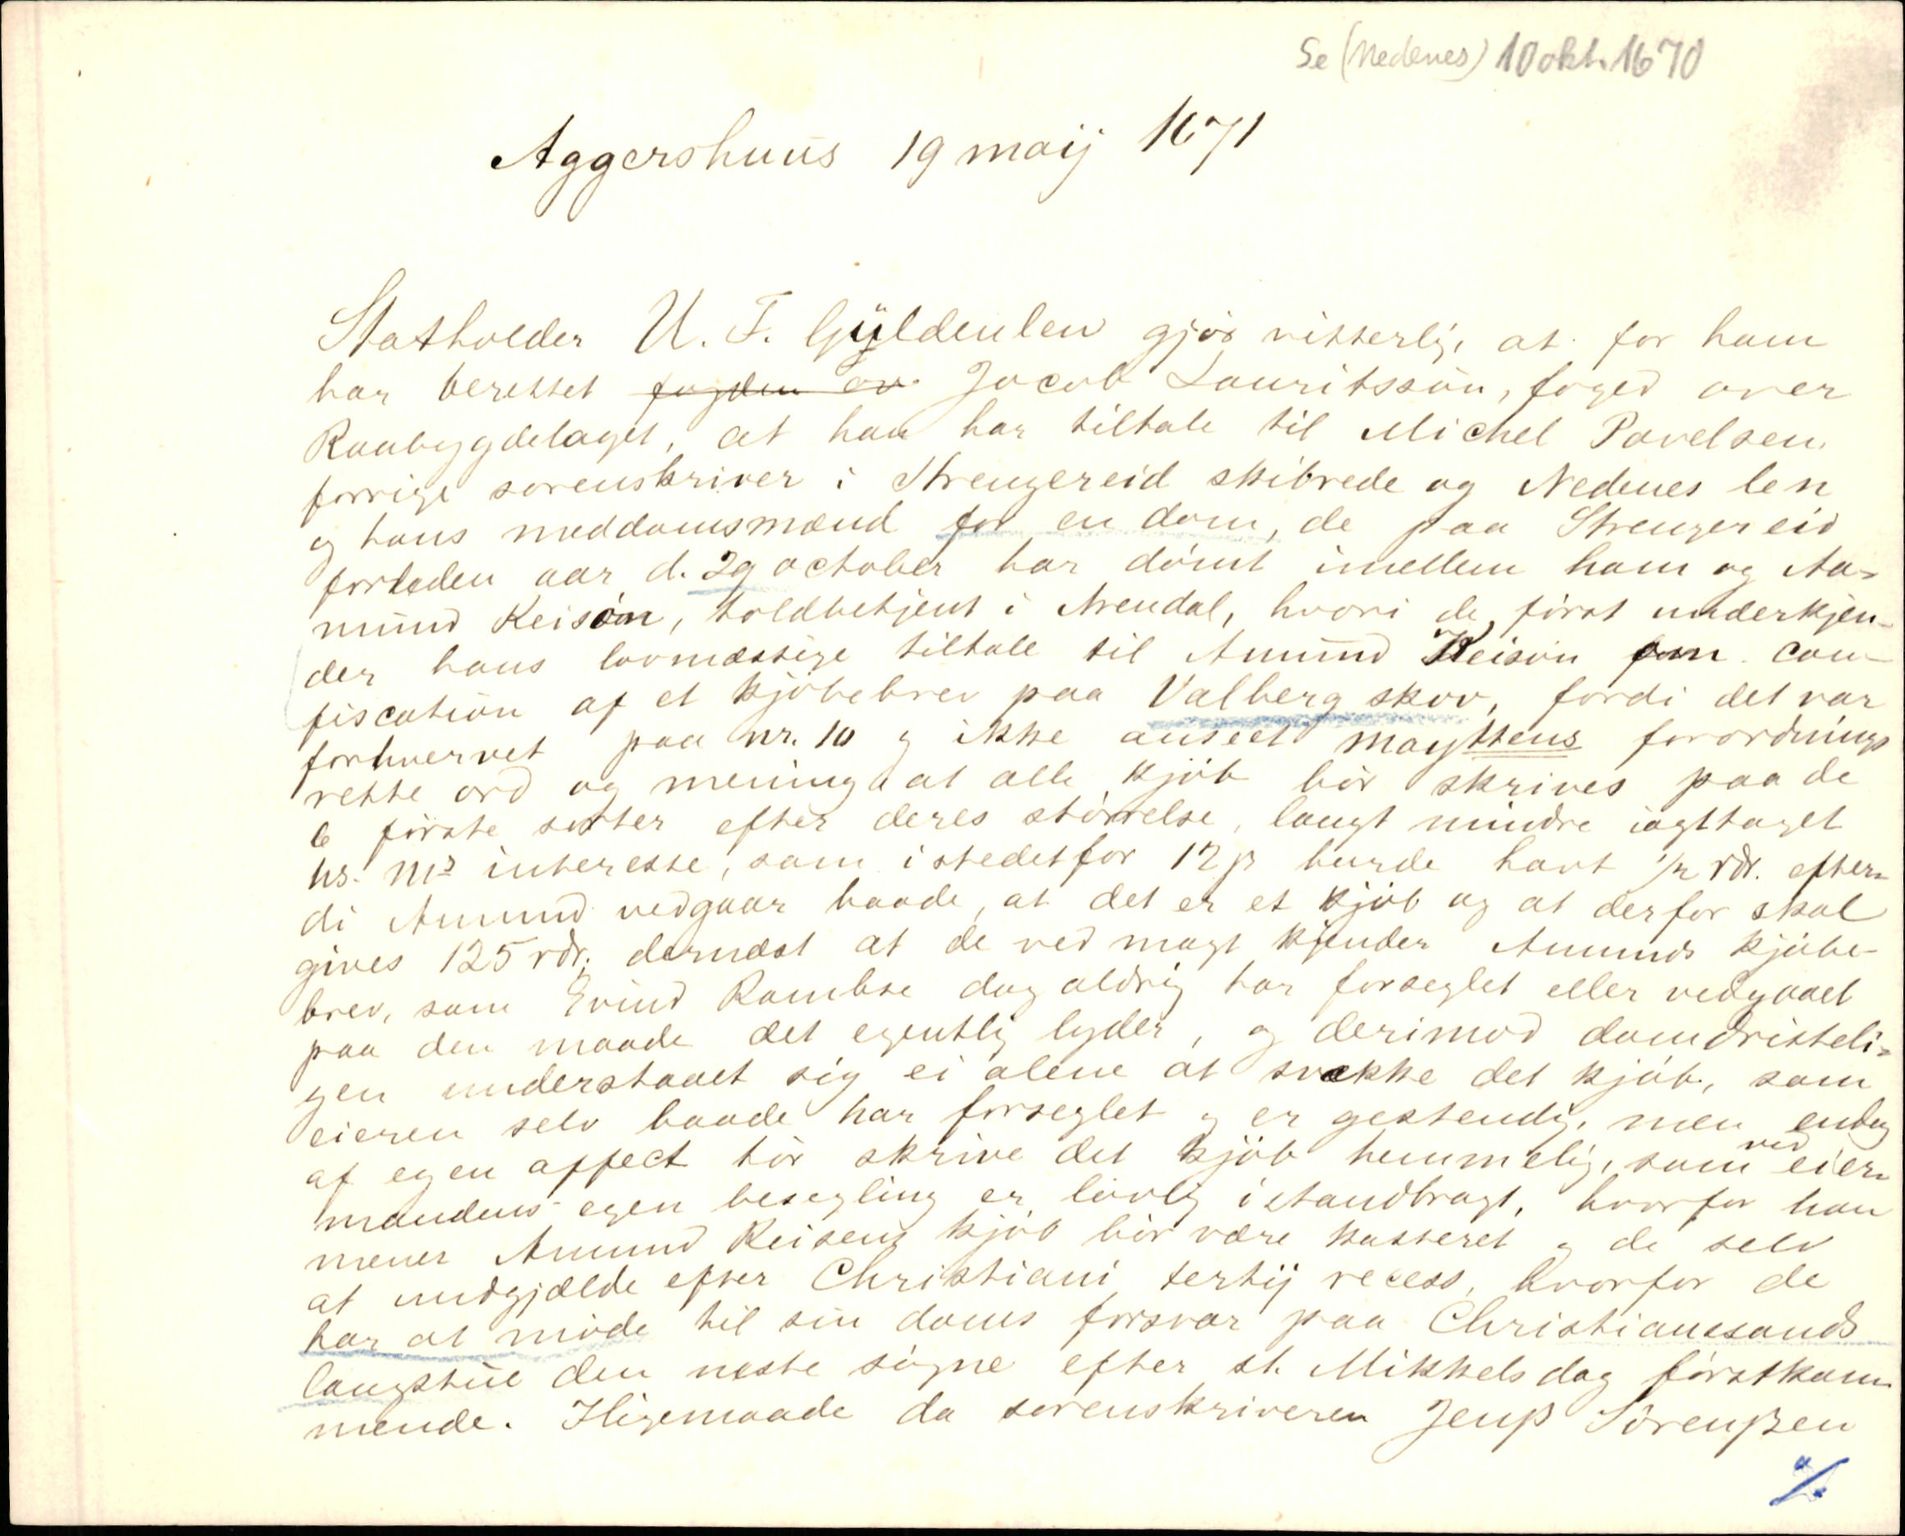 Se (Nedenes) 10 okt. 1670
Aggershuus 19 maij 1671
Statholder U. F. Gÿldenlew gjør vitterlig, at for ham
har berettet fogden ov Jacob Lauritssøn, foged over
Raabygdelaget, at han har tiltale til Michel Povelsen
forrige sorenskriver i Strengereid skibrede og Nedenes len
og hans meddomsmænd for en dom, de paa Strengereid
forleden aar d. 29 october har dømt imellem ham og Aa-
mund Keisøn, toldbetjent i Arendal, hvori de først underkjen-
der hans lovmæssige tiltale til Amund Keisøn om con-
fiscation af et kjøbebrev paa Valberg skov, fordi det var
forhvervet paa nr. 10 og ikke anseet mayttens forordnings
rette ord og mening at alle kjøb bør skrives paa de
6 første sorter efter deres størrelse, langt mindre iagttaget
hs. Ms interesse, som istedetfor 12 β burde havt 1/2 rdr. efter-
di Amund vedgaar baade, at det er et kjøb og at derfor skal
gives 125 rdr. dernæst at de ved magt kjender Amunds kjøbe-
brev, som Evind Rambse dog aldrig har forseglet eller vedgaaet
paa den maade det egentlig lyder, og derimod domdristeli-
gen understaaet sig ei alene at svække det kjøb, som
eieren selv baade har forseglet og er gestendig, men endog
af egen affect tør skrive det kjøb hemmelig, som ved eier-
mandens egen besegling er lovlig istandbragt, hvorfor han
mener Amund Keisens kjøb bør være kasseret og de selv
at undgjælde efter Christiani tertij recess, hvorfor de
har at møde til sin doms forsvar paa Christianssands
laugstue den neste søgne efter st. Mikkels dag førstkom-
mende. Iligemaade da sorenskriveren Jenß Sørenßen
%